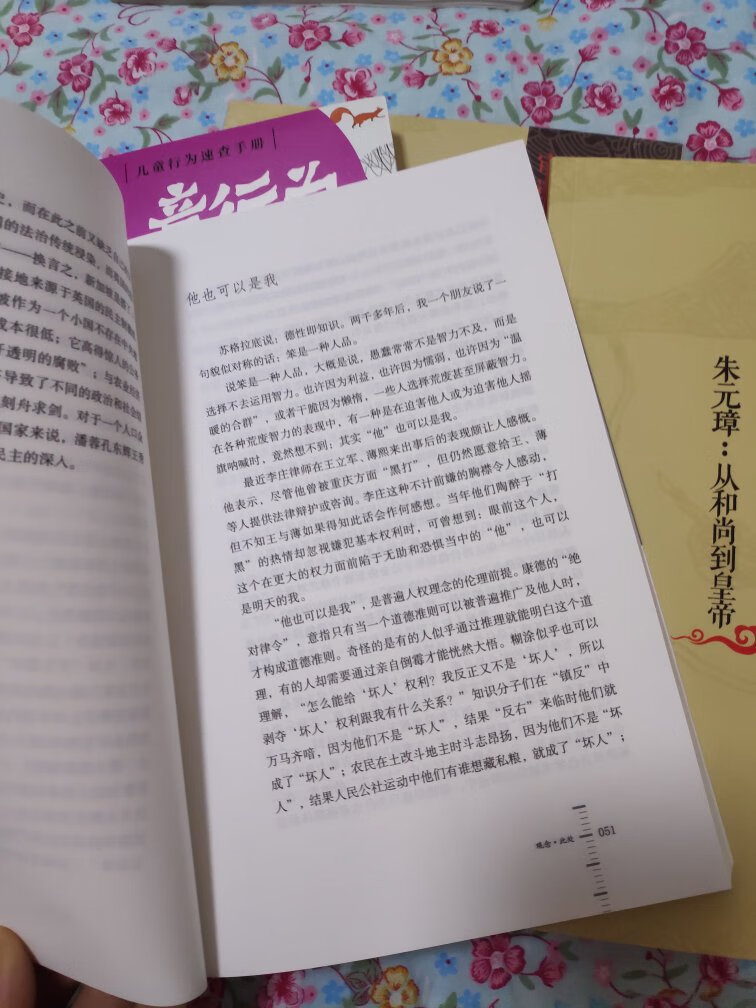 儿童行为速查手册
童行为
史，而在此之前又缺乏
的法治传统浸染，而
——换言之，新加坡
接地来源于英国的民主
被作为一个小国不存在中
成本很低；它高得惊人的公
开透明的腐败”；与农业
不导致了不同的政治和社会
刻舟求剑。对于一个人口众
国家来说，潘蓉孔东辉王
民主的深入。
他也可以是我
苏格拉底说：德性即知识。两千多年后，我一个朋友说了一
句貌似对称的话：笨是一种人品。
说笨是一种人品，大概是说，愚蠢常常不是智力不及，而是
选择不去运用智力。也许因为利益，也许因为懦弱，也许因为“温
暖的合群”，或者干脆因为懒惰，一些人选择荒废甚至屏蔽智力。
在各种荒废智力的表现中，有一种是在迫害他人或为迫害他人摇
旗呐喊时，竟然想不到：其实“他”也可以是我。
最近李庄律师在王立军、薄熙来出事后的表现颇让人感慨。
他表示，尽管他曾被重庆方面“黑打”，但仍然愿意给王、薄
等人提供法律辩护或咨询。李庄这种不计前嫌的胸襟令人感动，
但不知王与薄如果得知此话会作何感想。当年他们陶醉于“打
黑”的热情却忽视嫌犯基本权利时，可曾想到：眼前这个人，
这个在更大的权力面前陷于无助和恐惧当中的“他”，也可以
是明天的我。
“他也可以是我”，是普遍人权理念的伦理前提。康德的“绝
对律令”，意指只有当一个道德准则可以被普遍推广及他人时，
才构成道德准则。奇怪的是有的人似乎通过推理就能明白这个道
理，有的人却需要通过亲自倒霉才能恍然大悟。糊涂似乎也可以
理解，“怎么能给‘坏人’权利？我反正又不是‘坏人’，所以
剥夺‘坏人’权利跟我有什么关系？”知识分子们在“镇反”中
万马齐喑，因为他们不是“坏人”，结果“反右”来临时他们就
成了“坏人”；农民在土改斗地主时斗志昂扬，因为他们不是“坏
人”，结果人民公社运动中他们有谁想藏私粮，就成了“坏人”；
观念·此处
051
朱元璋：从和尚到皇帝